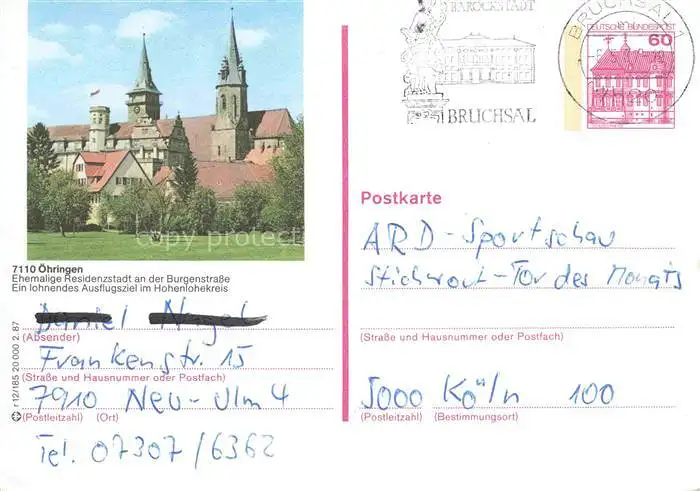 BAROCKSTADT
BRUCHSAL
BRUCHSAL 1
DEUTSCHE BUNDESPOST
60
copy protect
7110 Öhringen
Ehemalige Residenzstadt an der Burgenstraße
Ein lohnendes Ausflugsziel im Hohenlohekreis
(Absender)
Frankenstr. 15
(Straße und Hausnummer oder Postfach)
7910 Neu-Ulm 4
(Postleitzahl) (Ort)
Tel. 07307/6362
r 12/185 20 000 2.87
Postkarte
ARD-Sportschau
Stichwort-Tor des Monats
(Straße und Hausnummer oder Postfach)
5000 Köln 100
(Postleitzahl) (Bestimmungsort)